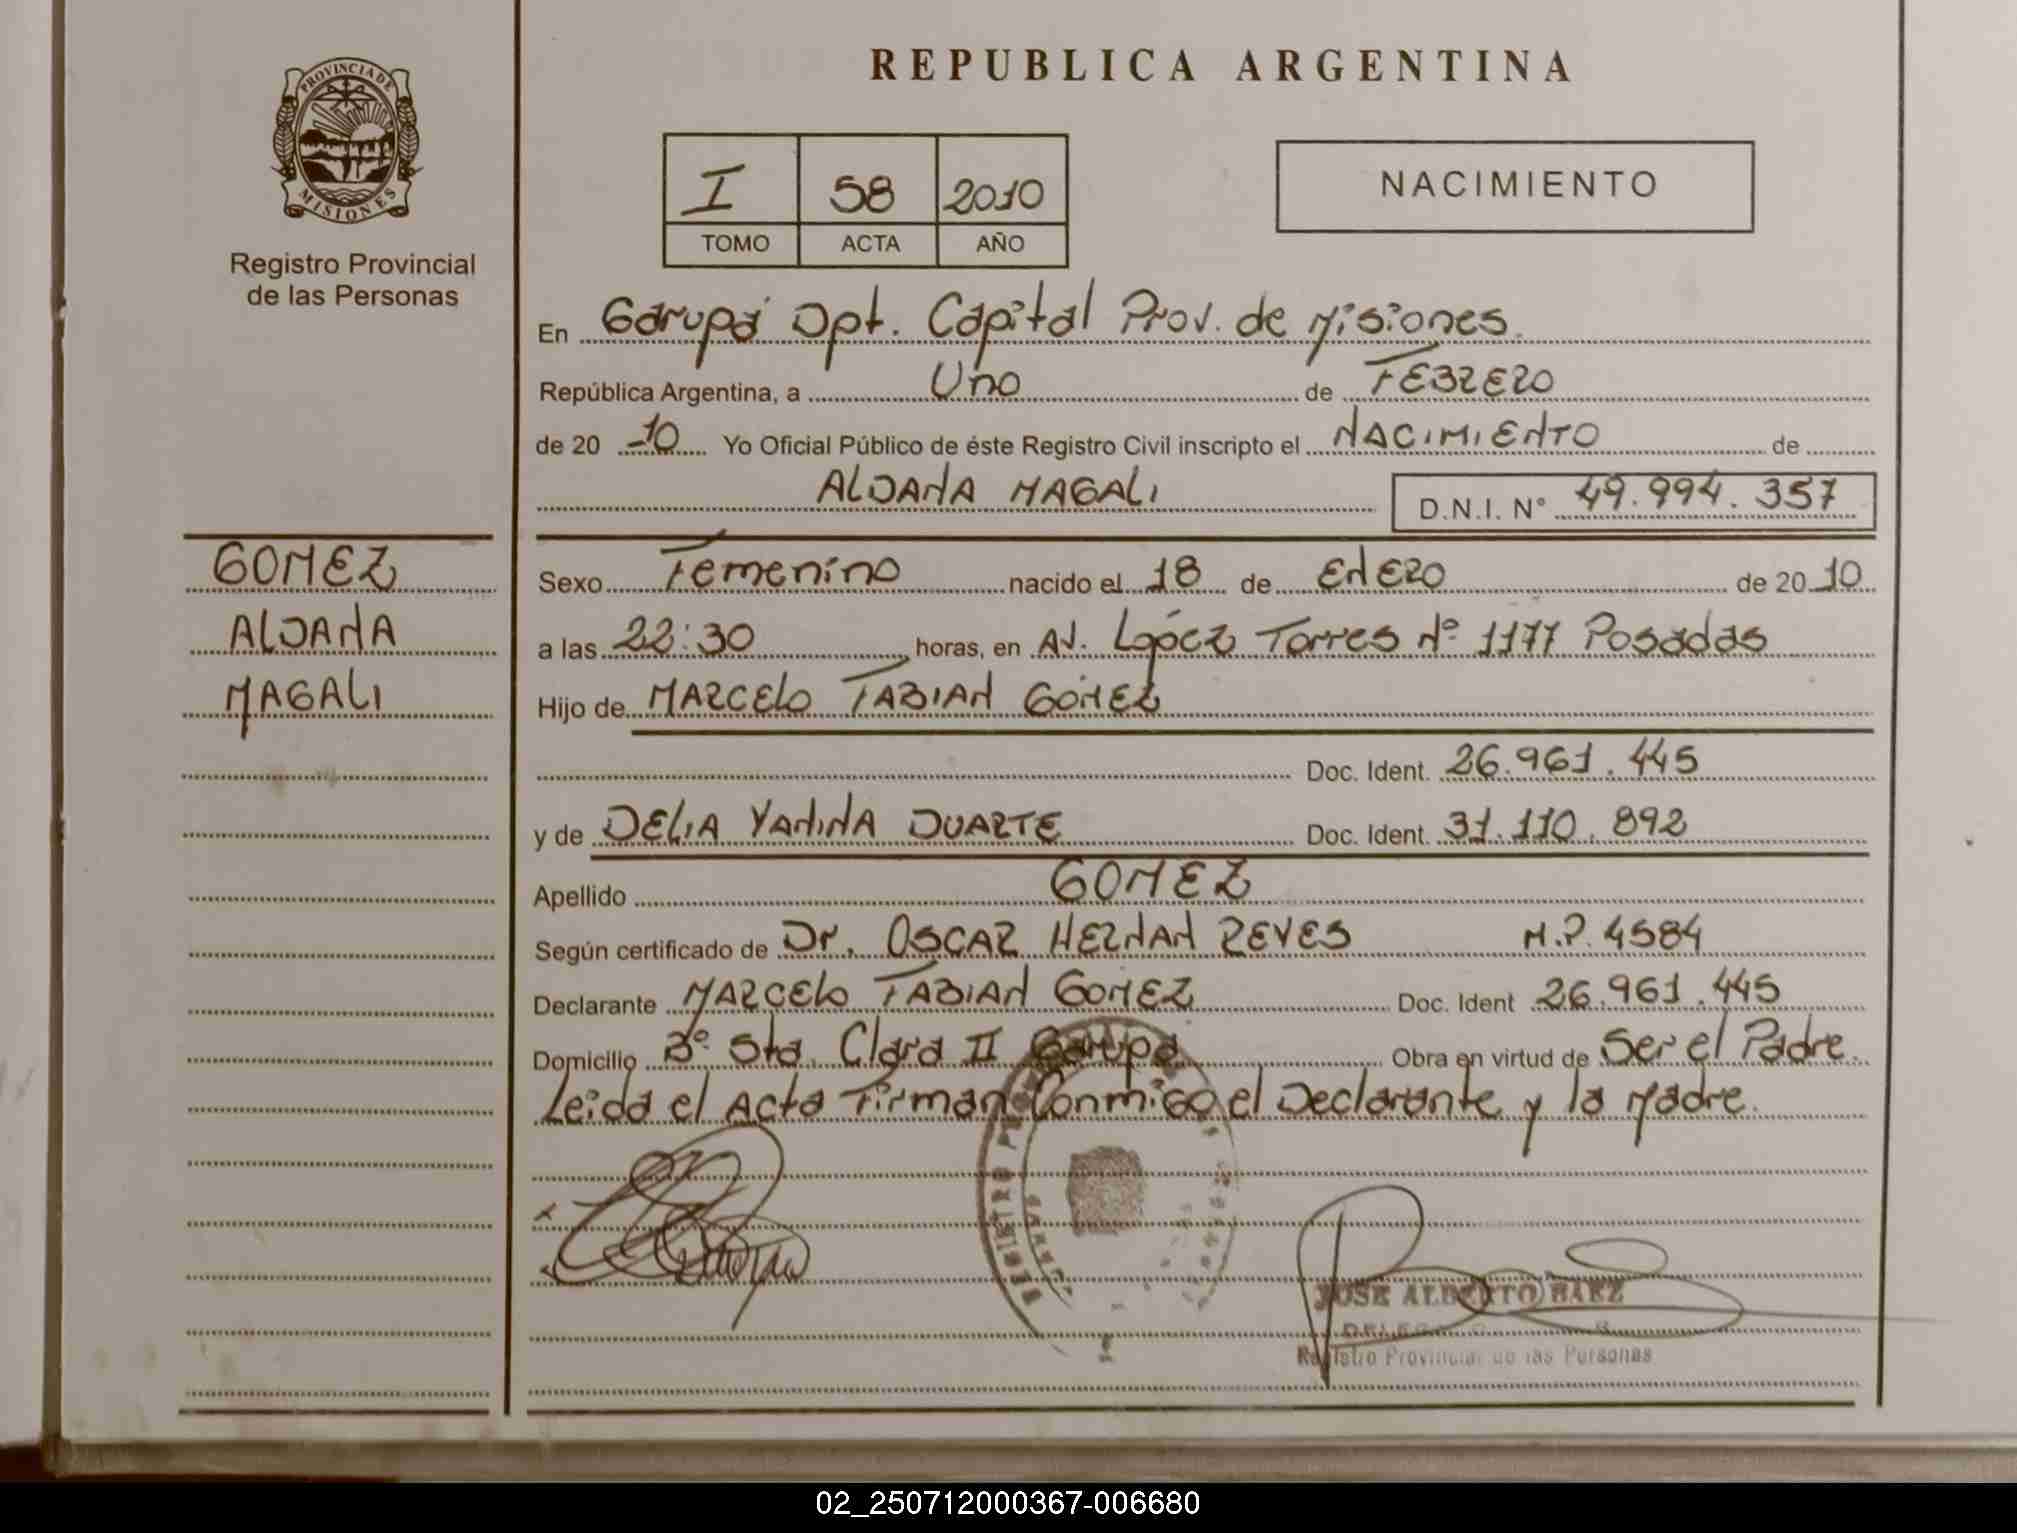 PROVINCIA DE
MISIONES
Registro Provincial
de las Personas
GOMEZ
ALDANA
MAGALI
REPUBLICA ARGENTINA
I 58 2010
TOMO ACTA AÑO
NACIMIENTO
En Garupá Dpt. Capital Prov. de Misiones.
República Argentina, a Uno de FEBRERO
de 20 10 Yo Oficial Público de éste Registro Civil inscripto el NACIMIENTO de
ALDANA MAGALI D.N.I. N° 49.994.357
Sexo Femenino nacido el 18 de ENERO de 20 10
a las 22:30 horas, en AV. López Torres N° 1177 Posadas
Hijo de MARCELO FABIAN GOMEZ
Doc. Ident. 26.961.445
y de DELIA YANINA DUARTE Doc. Ident. 31.110.892
Apellido GOMEZ
Según certificado de Dr. OSCAR HERNAN REYES M.P. 4584
Declarante MARCELO FABIAN GOMEZ Doc. Ident 26.961.445
Domicilio B° Sta. Clara II Garupá Obra en virtud de Ser el Padre.
Leida el Acta Firman Conmigo el Declarante y la Madre.
JOSE ALBERTO BAEZ
Registro Provincial de las Personas
02_250712000367-006680